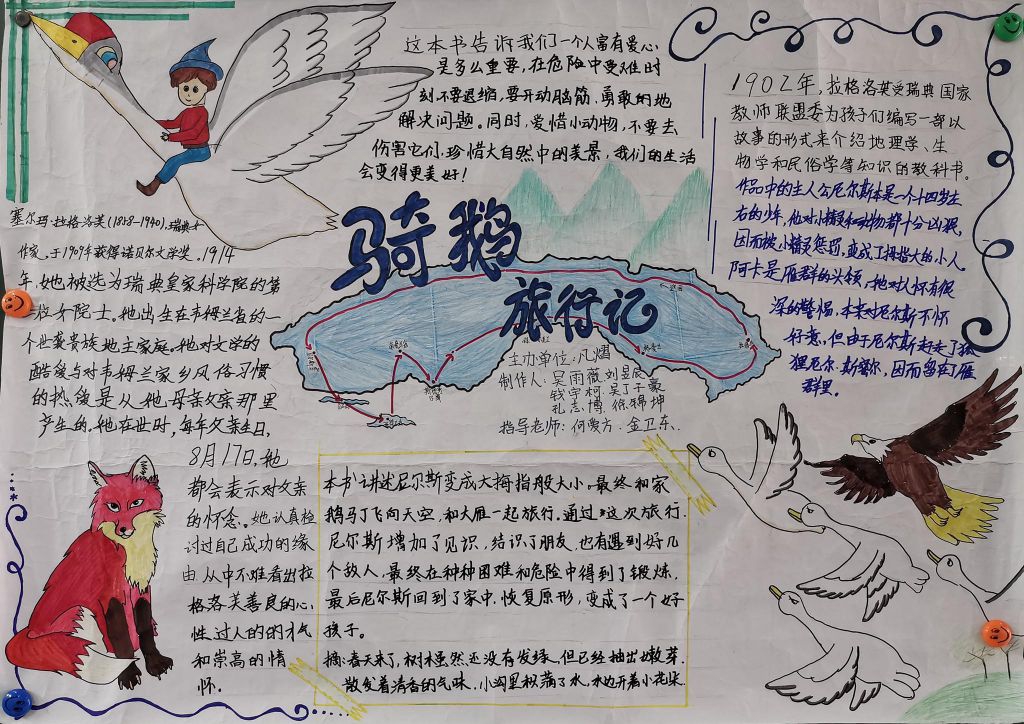 这本书告诉我们一个人富有爱心
是多么重要，在危险中受难时
刻不要退缩，要开动脑筋，勇敢的地
解决问题。同时，爱惜小动物，不要去
伤害它们，珍惜大自然中的美景，我们的生活
会变得更美好！
1902年，拉格洛芙受瑞典国家
教师联盟委为孩子们编写一部以
故事的形式来介绍地理学、生
物学和民俗学等知识的教科书。
作品中的主人公尼尔斯本是一个十四岁左
右的少年，他对小精灵和动物都十分凶狠，
因而被小精灵惩罚，变成了拇指大的小人
阿卡是雁群的头领，她对人怀有很
深的警惕，本来对尼尔斯不怀
好意，但由于尼尔斯赶走了狐
狸尼尔·斯密尔，因而留在了雁
群里。
塞尔玛·拉格洛芙(1858-1940)，瑞典女
作家。于1909年获得诺贝尔文学奖。1914
年，她被选为瑞典皇家科学院的第
一位女院士。她出生在韦姆兰省的一
个世袭贵族地主家庭。她对文学的
酷爱与对韦姆兰家乡风俗习惯
的热爱是从她母亲父亲那里
产生的。她在世时，每年父亲生日，
8月17日，她
都会表示对父亲
的怀念。她认真检
讨过自己成功的缘
由，从中不难看出拉
格洛芙善良的心
性，过人的的才气
和崇高的情
怀。
骑鹅
旅行记
主办单位：凡熠
制作人：吴雨薇、刘昱辰
钱宇柯、吴丁子豪
孔志博、徐锦坤
指导老师：何爱方、金卫东、
本书讲述尼尔斯变成大拇指般大小，最终和家
鹅马丁飞向天空，和大雁一起旅行。通过这次旅行，
尼尔斯增加了见识，结识了朋友，也有遇到好几
个敌人，最终在种种困难和危险中得到了锻炼，
最后尼尔斯回到了家中，恢复原形，变成了一个好
孩子。
摘：春天来了，树木虽然还没有发绿，但已经抽出嫩芽，
散发着清香的气味，小沟里积满了水，水边开着小花朵